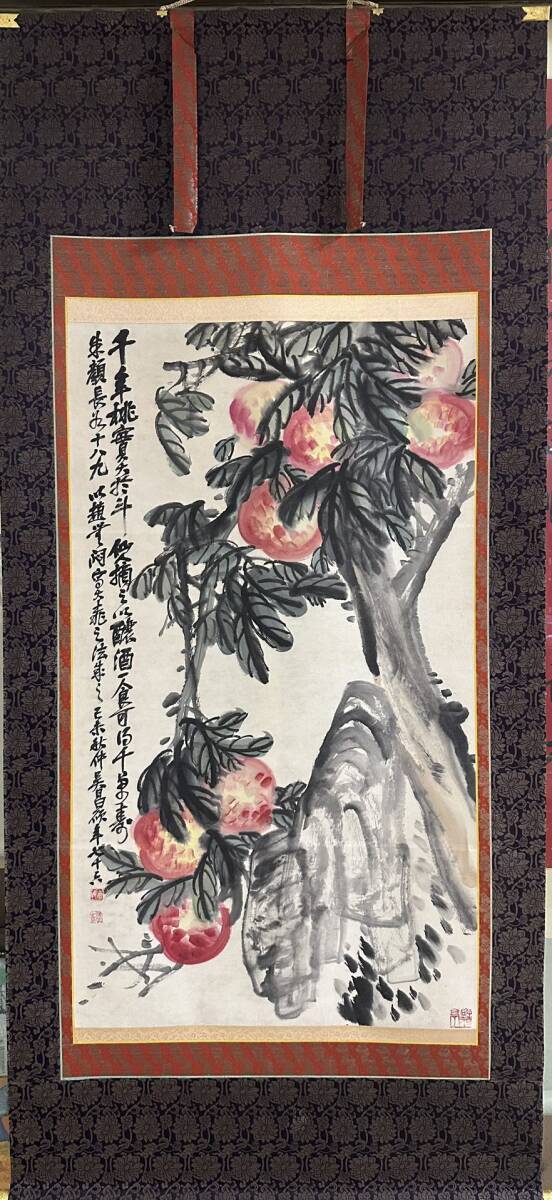 千年桃實大於斗 仙人摘之以釀酒 一食可得千年壽
朱顏長如十八九 以趙無悶寫大桃之法成之 己未秋仲 吳昌碩年七十六